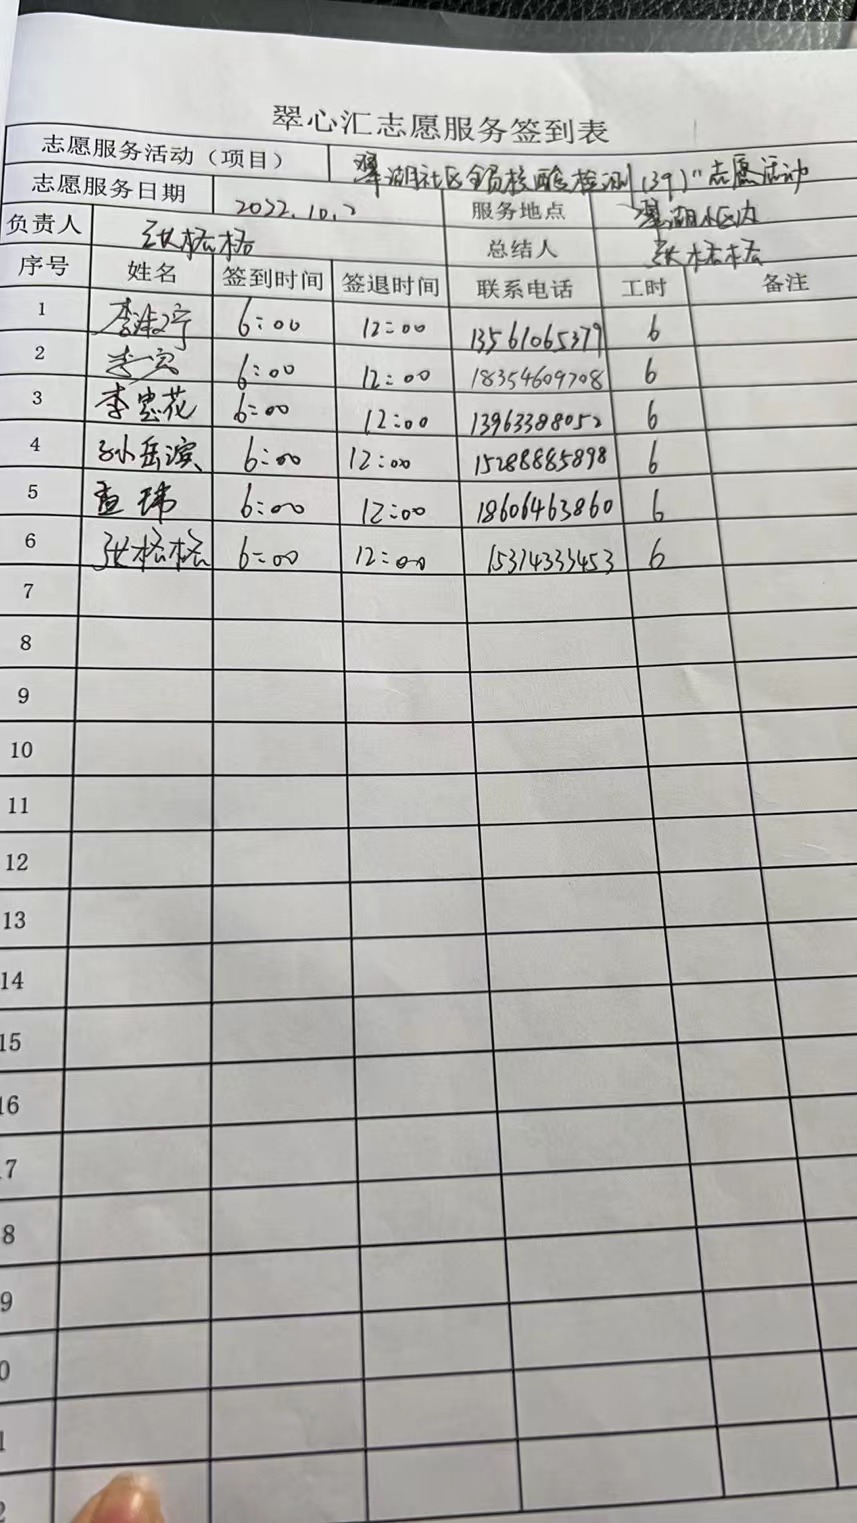 翠心汇志愿服务签到表
志愿服务活动（项目） 翠湖社区全员核酸检测(39)"志愿活动
志愿服务日期 2022.10.2 服务地点 翠湖小区内
负责人 张格格 总结人 张格格
序号 姓名 签到时间 签退时间 联系电话 工时 备注
1 6:00 12:00 13561065379 6
2 6:00 12:00 18354609708 6
3 李惠花 6:00 12:00 13963388052 6
4 孙岳滨 6:00 12:00 15288885898 6
5 玮 6:00 12:00 18606463860 6
6 张格格 6:00 12:00 15314333453 6
7
8
9
10
11
12
13
14
15
16
7
8
9
0
1
2